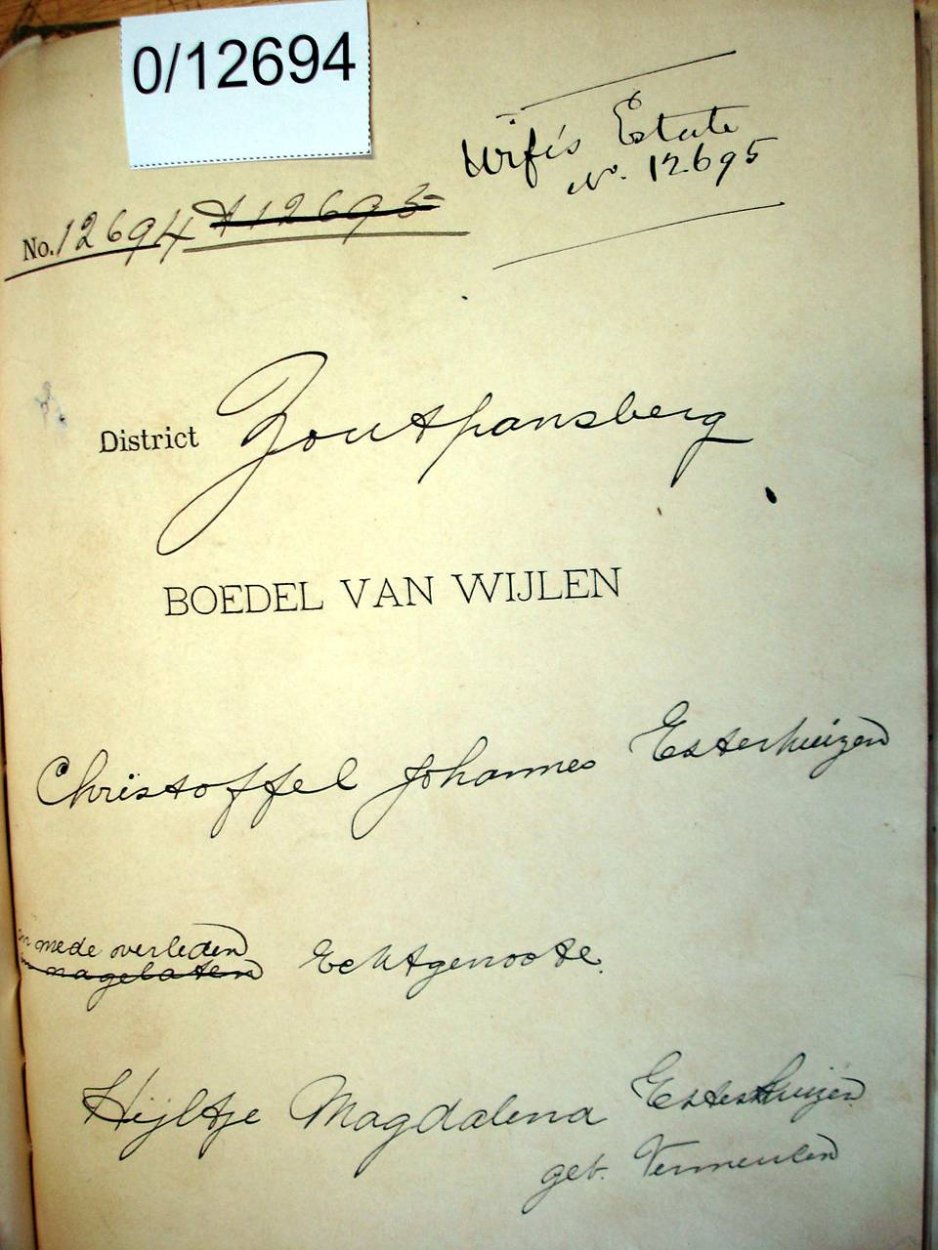 0/12694
Wife's Estate
No. 12695
No. 12694 & 12695
District Zoutpansberg
BOEDEL VAN WIJLEN
Christoffel Johannes Esterhuizen
en mede overleden Echtgenoote
nagelaten
Hijltje Magdalena Esterhuizen
geb. Vermeulen